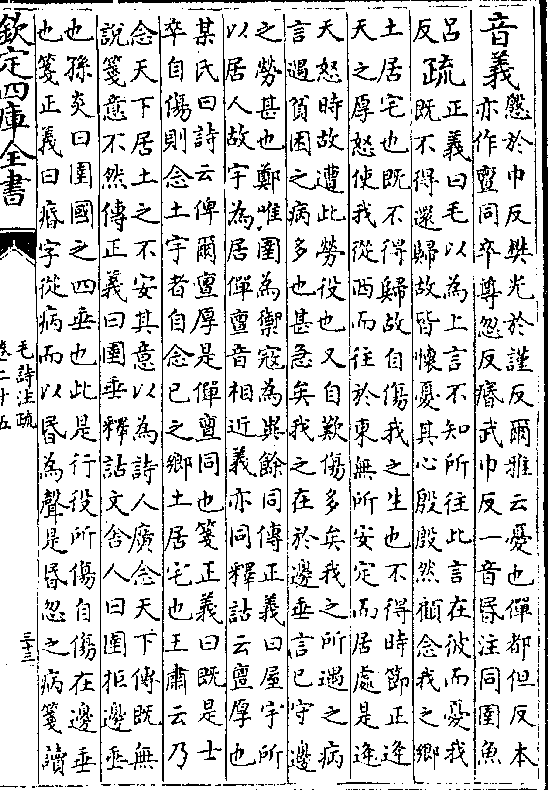 音義慇於巾反樊光於謹反爾雅云憂也僤都但反本
亦作亶同卒尊忽反瘽武巾反一音昬注同圉魚
呂反
疏正義曰毛以為上言不知所往此言在彼而憂我
既不得還歸故皆懷憂其心殷殷然顧念我之鄉
土居宅也既不得歸故自傷我之生也不得時節正逢
天之厚怒使我從西而往於東無所安定而居處是逢
天怒時故遭此勞役也又自歎傷多矣我之所遇之病
言遇貧困之病多也甚急矣我之在於邊垂言已守邊
之勞甚也鄭唯圉為禦寇為異餘同傳正義曰屋宇所
以居人故宇為居僤亶音相近義亦同釋詁云亶厚也
某氏曰詩云俾爾亶厚是僤亶同也箋正義曰既是士
卒自傷則念土宇者自念已之鄉土居宅也王肅云乃
念天下居土之不安其意以為詩人廣念天下傳既無
說箋意不然傳正義曰圉垂釋詁文舍人曰圉拒邊垂
也孫炎曰圉國之四垂也此是行役所傷自傷在邊垂
也箋正義曰瘽字從病而以昬為聲是昬忽之病箋讀
欽定四庫全書
毛詩注疏
卷二十五
三十三